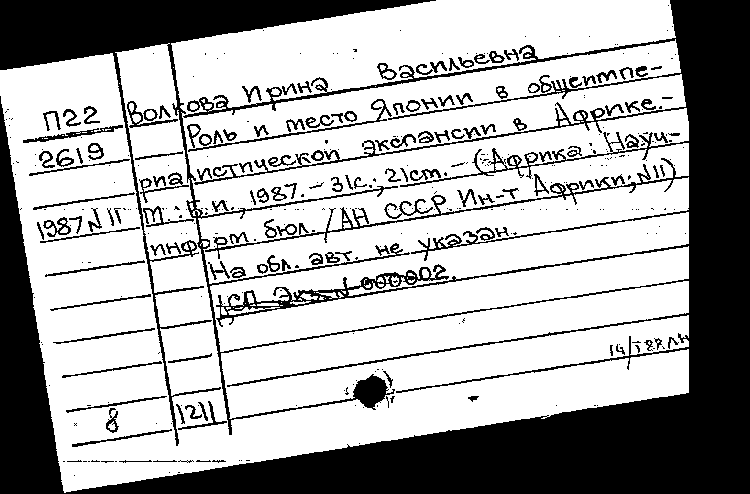 П22 Волкова, Ирина Васильевна
2619 Роль и место Японии в общеимпе-
риалистической экспансии в Африке.-
1987 N 11 М.: Б.и., 1987.- 31с.; 21см.- (Африка: Науч.-
информ. бюл. / АН СССР. Ин-т Африки; N11)
На обл. авт. не указан.
ДСП Экз. N 000002.
8 1211